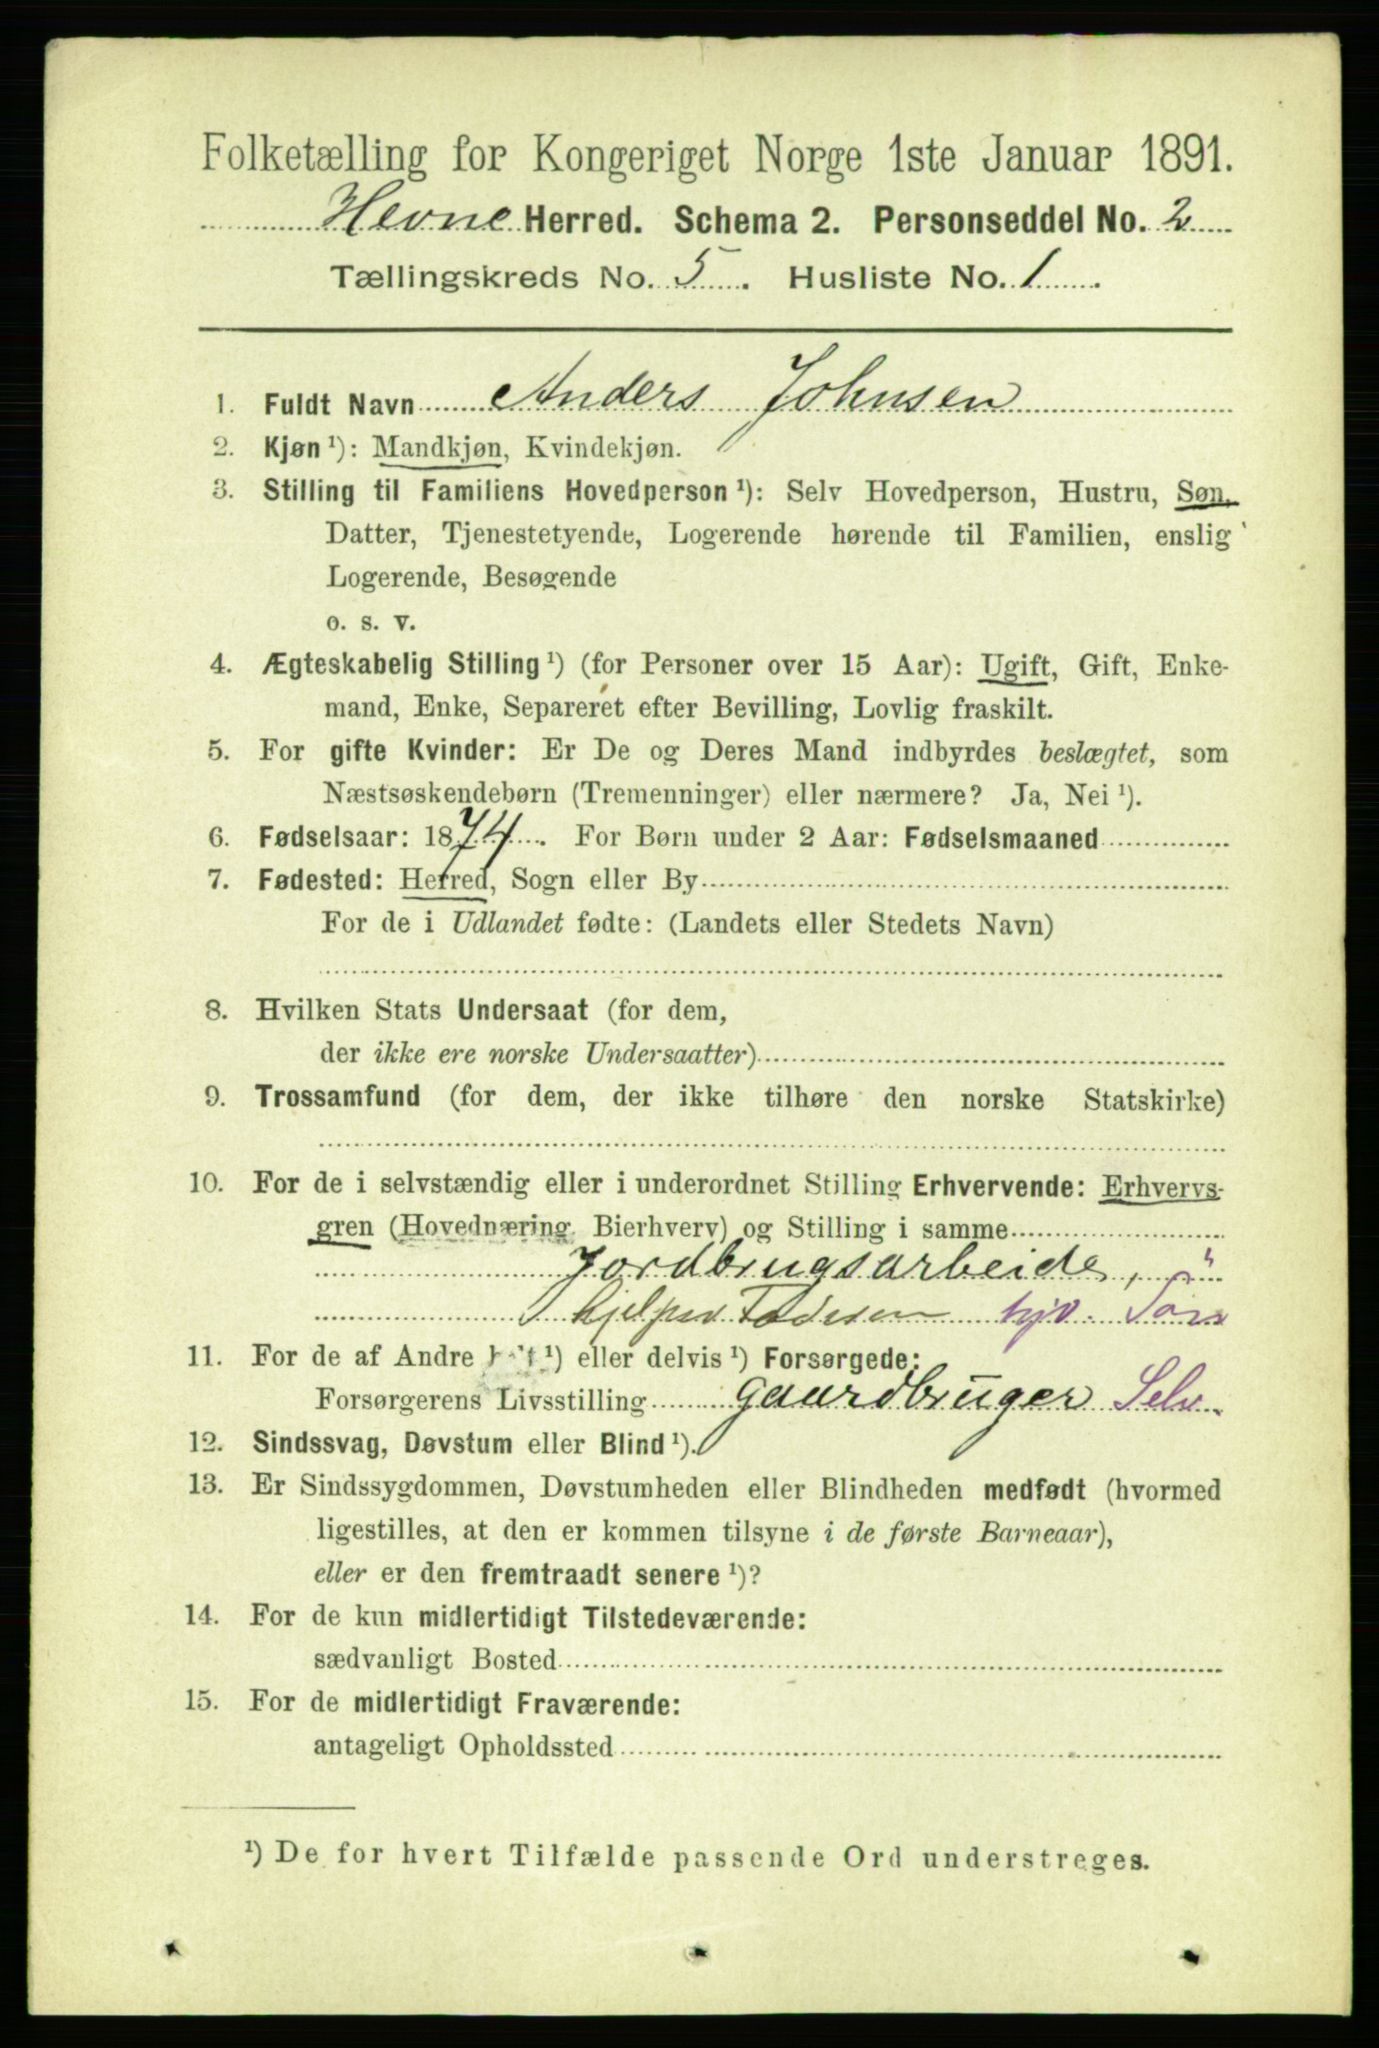 Folketælling for Kongeriget Norge 1ste Januar 1891.
Hevne Herred. Schema 2. Personseddel No. 2
Tællingskreds No. 5. Husliste No. 1.
1. Fuldt Navn Anders Johnsen
2. Kjøn ¹): Mandkjøn, Kvindekjøn.
3. Stilling til Familiens Hovedperson ¹): Selv Hovedperson, Hustru, Søn,
Datter, Tjenestetyende, Logerende hørende til Familien, enslig
Logerende, Besøgende
o. s. v.
4. Ægteskabelig Stilling ¹) (for Personer over 15 Aar): Ugift, Gift, Enke-
mand, Enke, Separeret efter Bevilling, Lovlig fraskilt.
5. For gifte Kvinder: Er De og Deres Mand indbyrdes beslægtet, som
Næstsøskendebørn (Tremenninger) eller nærmere? Ja, Nei ¹).
6. Fødselsaar: 1874. For Børn under 2 Aar: Fødselsmaaned
7. Fødested: Herred, Sogn eller By
For de i Udlandet fødte: (Landets eller Stedets Navn)
8. Hvilken Stats Undersaat (for dem,
der ikke ere norske Undersaatter)
9. Trossamfund (for dem, der ikke tilhøre den norske Statskirke)
10. For de i selvstændig eller i underordnet Stilling Erhvervende: Erhvervs-
gren (Hovednæring, Bierhverv) og Stilling i samme
Jordbrugsarbeide, "
hjelper Faderen hjv. Søn
11. For de af Andre ¹) eller delvis ¹) Forsørgede:
Forsørgerens Livsstilling Gaardbruger Selv.
12. Sindssvag, Døvstum eller Blind ¹).
13. Er Sindssygdommen, Døvstumheden eller Blindheden medfødt (hvormed
ligestilles, at den er kommen tilsyne i de første Barneaar),
eller er den fremtraadt senere ¹)?
14. For de kun midlertidigt Tilstedeværende:
sædvanligt Bosted
15. For de midlertidigt Fraværende:
antageligt Opholdssted
¹) De for hvert Tilfælde passende Ord understreges.